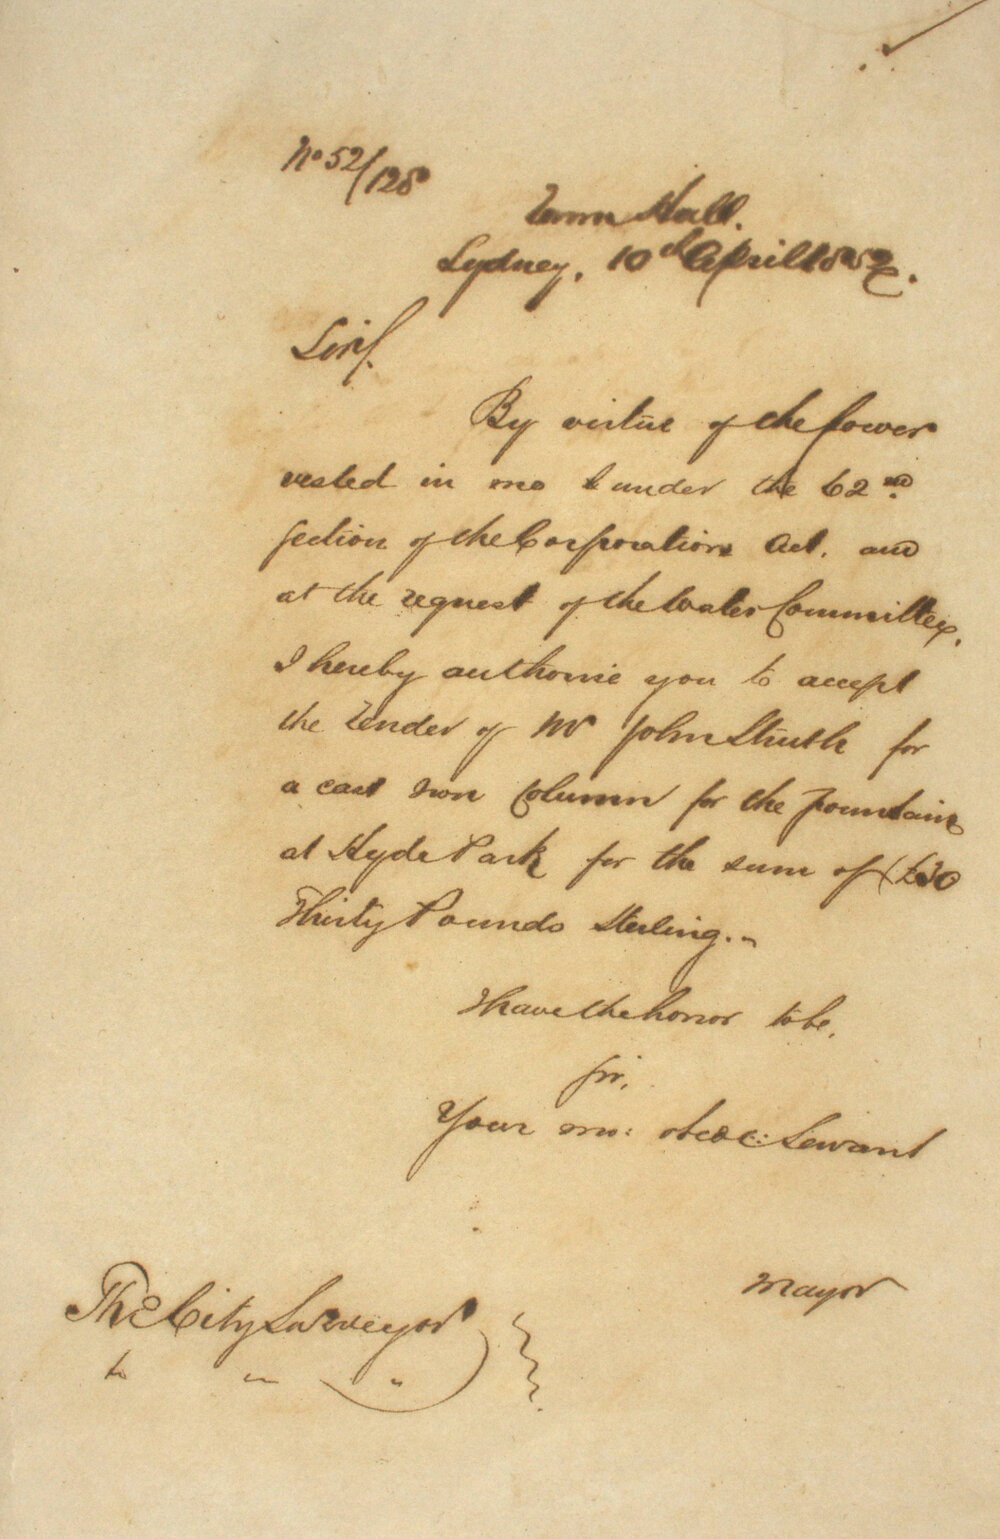 No 52/128
Town Hall.
Sydney, 10th April 1852.
Sir/.
By virtue of the power
vested in me & under the 62nd
Section of the Corporation Act. and
at the request of the Water Committee,
I hereby authorise you to accept
the Tender of Mr John Struth for
a cast iron Column for the Fountain
at Hyde Park for the sum of (£30
Thirty Pounds Sterling..
I have the honor to be,
Sir,
Your mo: obed: Servant
Mayor
The City Surveyor
to " "